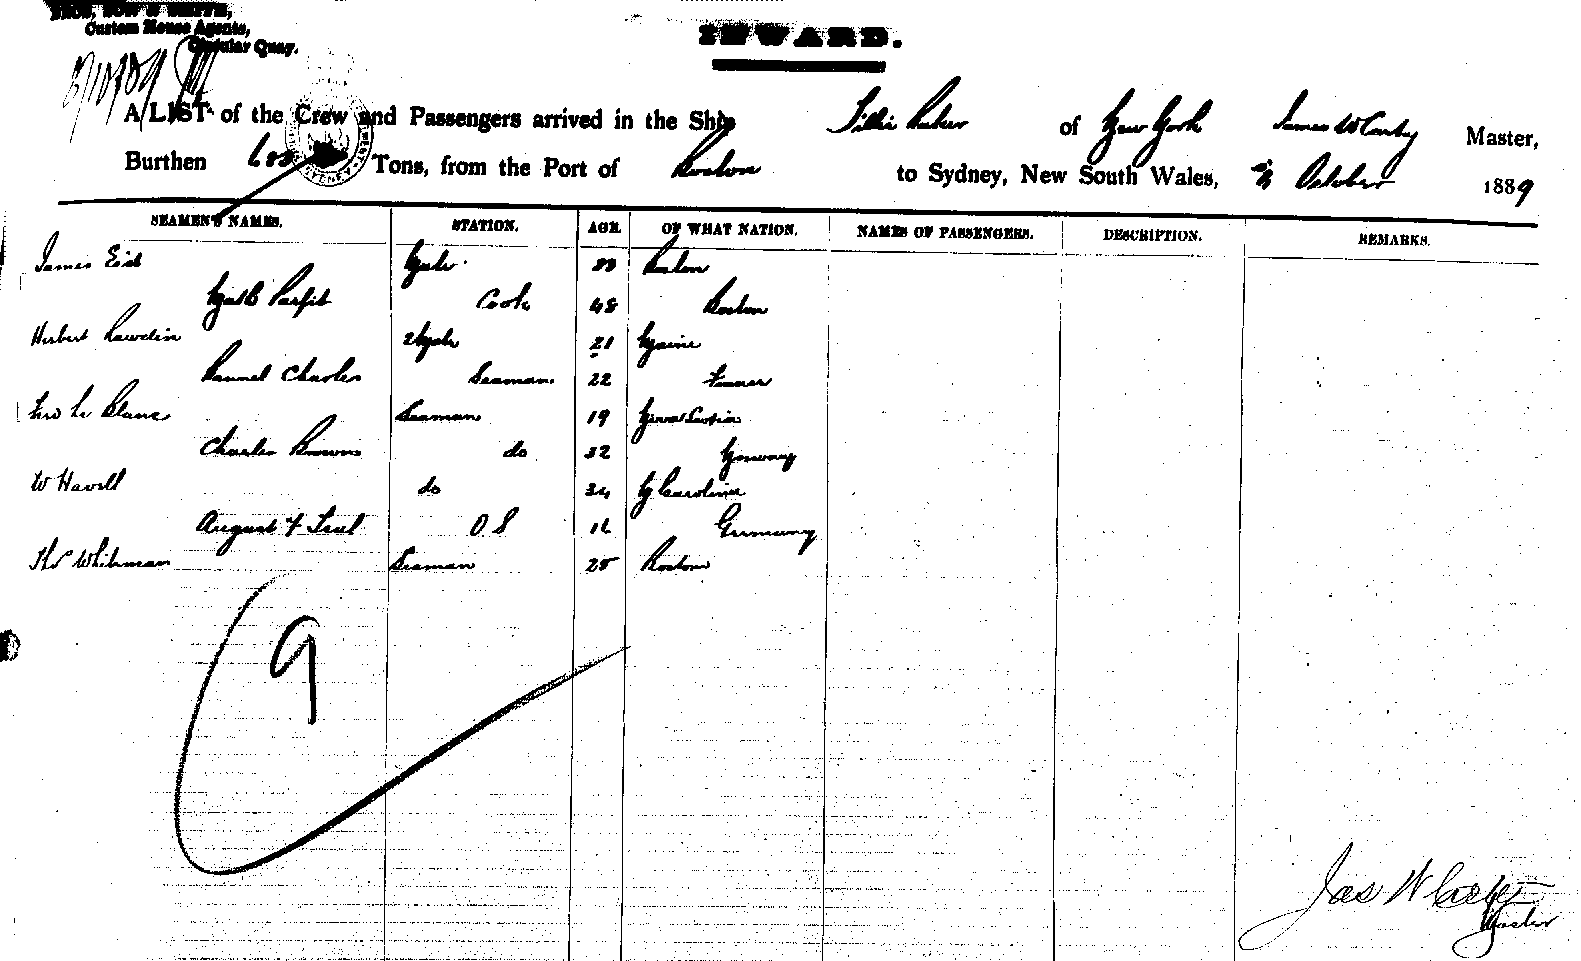 Custom House Agents,
Circular Quay.
INWARD.
A LIST of the Crew and Passengers arrived in the Ship Tillie Baker of New York James W Carty Master,
Burthen 600 Tons, from the Port of Boston to Sydney, New South Wales, October 1889
SEAMEN'S NAMES. STATION. AGE. OF WHAT NATION. NAMES OF PASSENGERS. DESCRIPTION. REMARKS.
James Mate Boston
Cook 48 Boston
Herbert 2 Mate 21 Maine
Charles Seaman 22
Le Blanc Seaman 19 Nova Scotia
Charles Brown do 32 Norway
W Havell do 34 N Carolina
August F O S 16 Germany
Thos Whitman Seaman 25 Boston
9
Jas W
Master